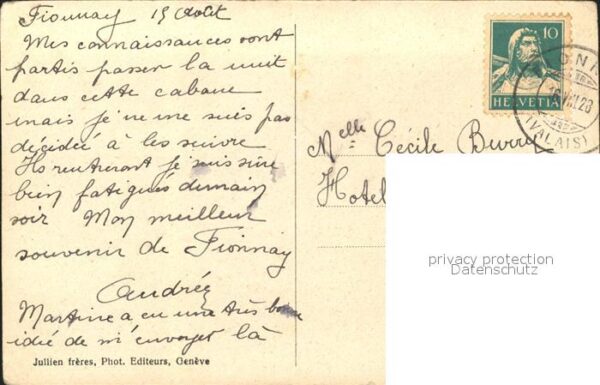 Fionnay 15 Août
Mes connaissances sont
partis passer la nuit
dans cette cabane
mais je ne me suis pas
décidée à les suivre
Ils rentreront je suis sûre
bien fatigués demain
soir Mon meilleur
souvenir de Fionnay
Andrée
Martine a eu une très bonne
idée de m'envoyer là
Jullien frères, Phot. Editeurs, Genève
10
HELVETIA
(VALAIS)
Melle Cécile
Hotel
privacy protection
Datenschutz